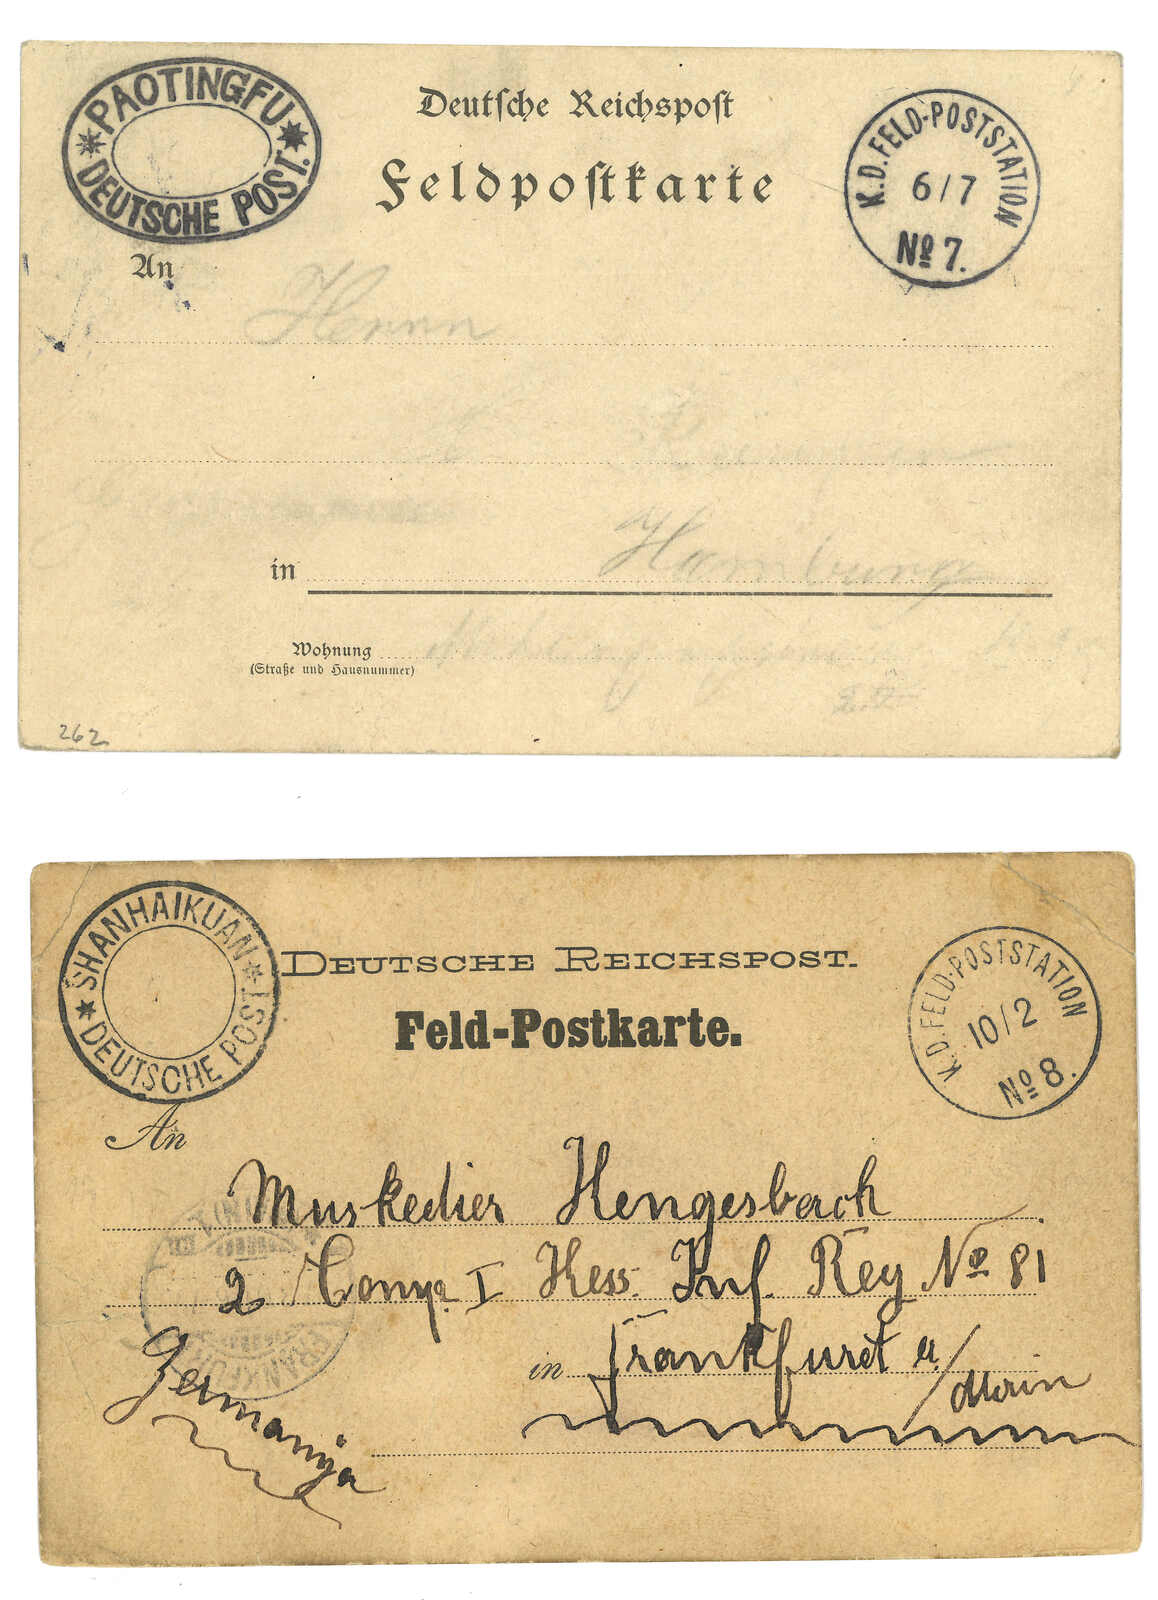 PAOTINGFU
DEUTSCHE POST.
Deutsche Reichspost
Feldpostkarte
K.D. FELD-POSTSTATION
6/7
No 7.
An
Herrn
in Hamburg
Wohnung
(Straße und Hausnummer)
262
SHANHAIKUAN
DEUTSCHE POST
DEUTSCHE REICHSPOST.
Feld-Postkarte.
K.D. FELD-POSTSTATION
10/2
No 8.
An
Muskedier Hengesbach
2 Comp. I Hess. Inf. Reg No 81
in Frankfurt a/Main
Germanija
FRANKFU